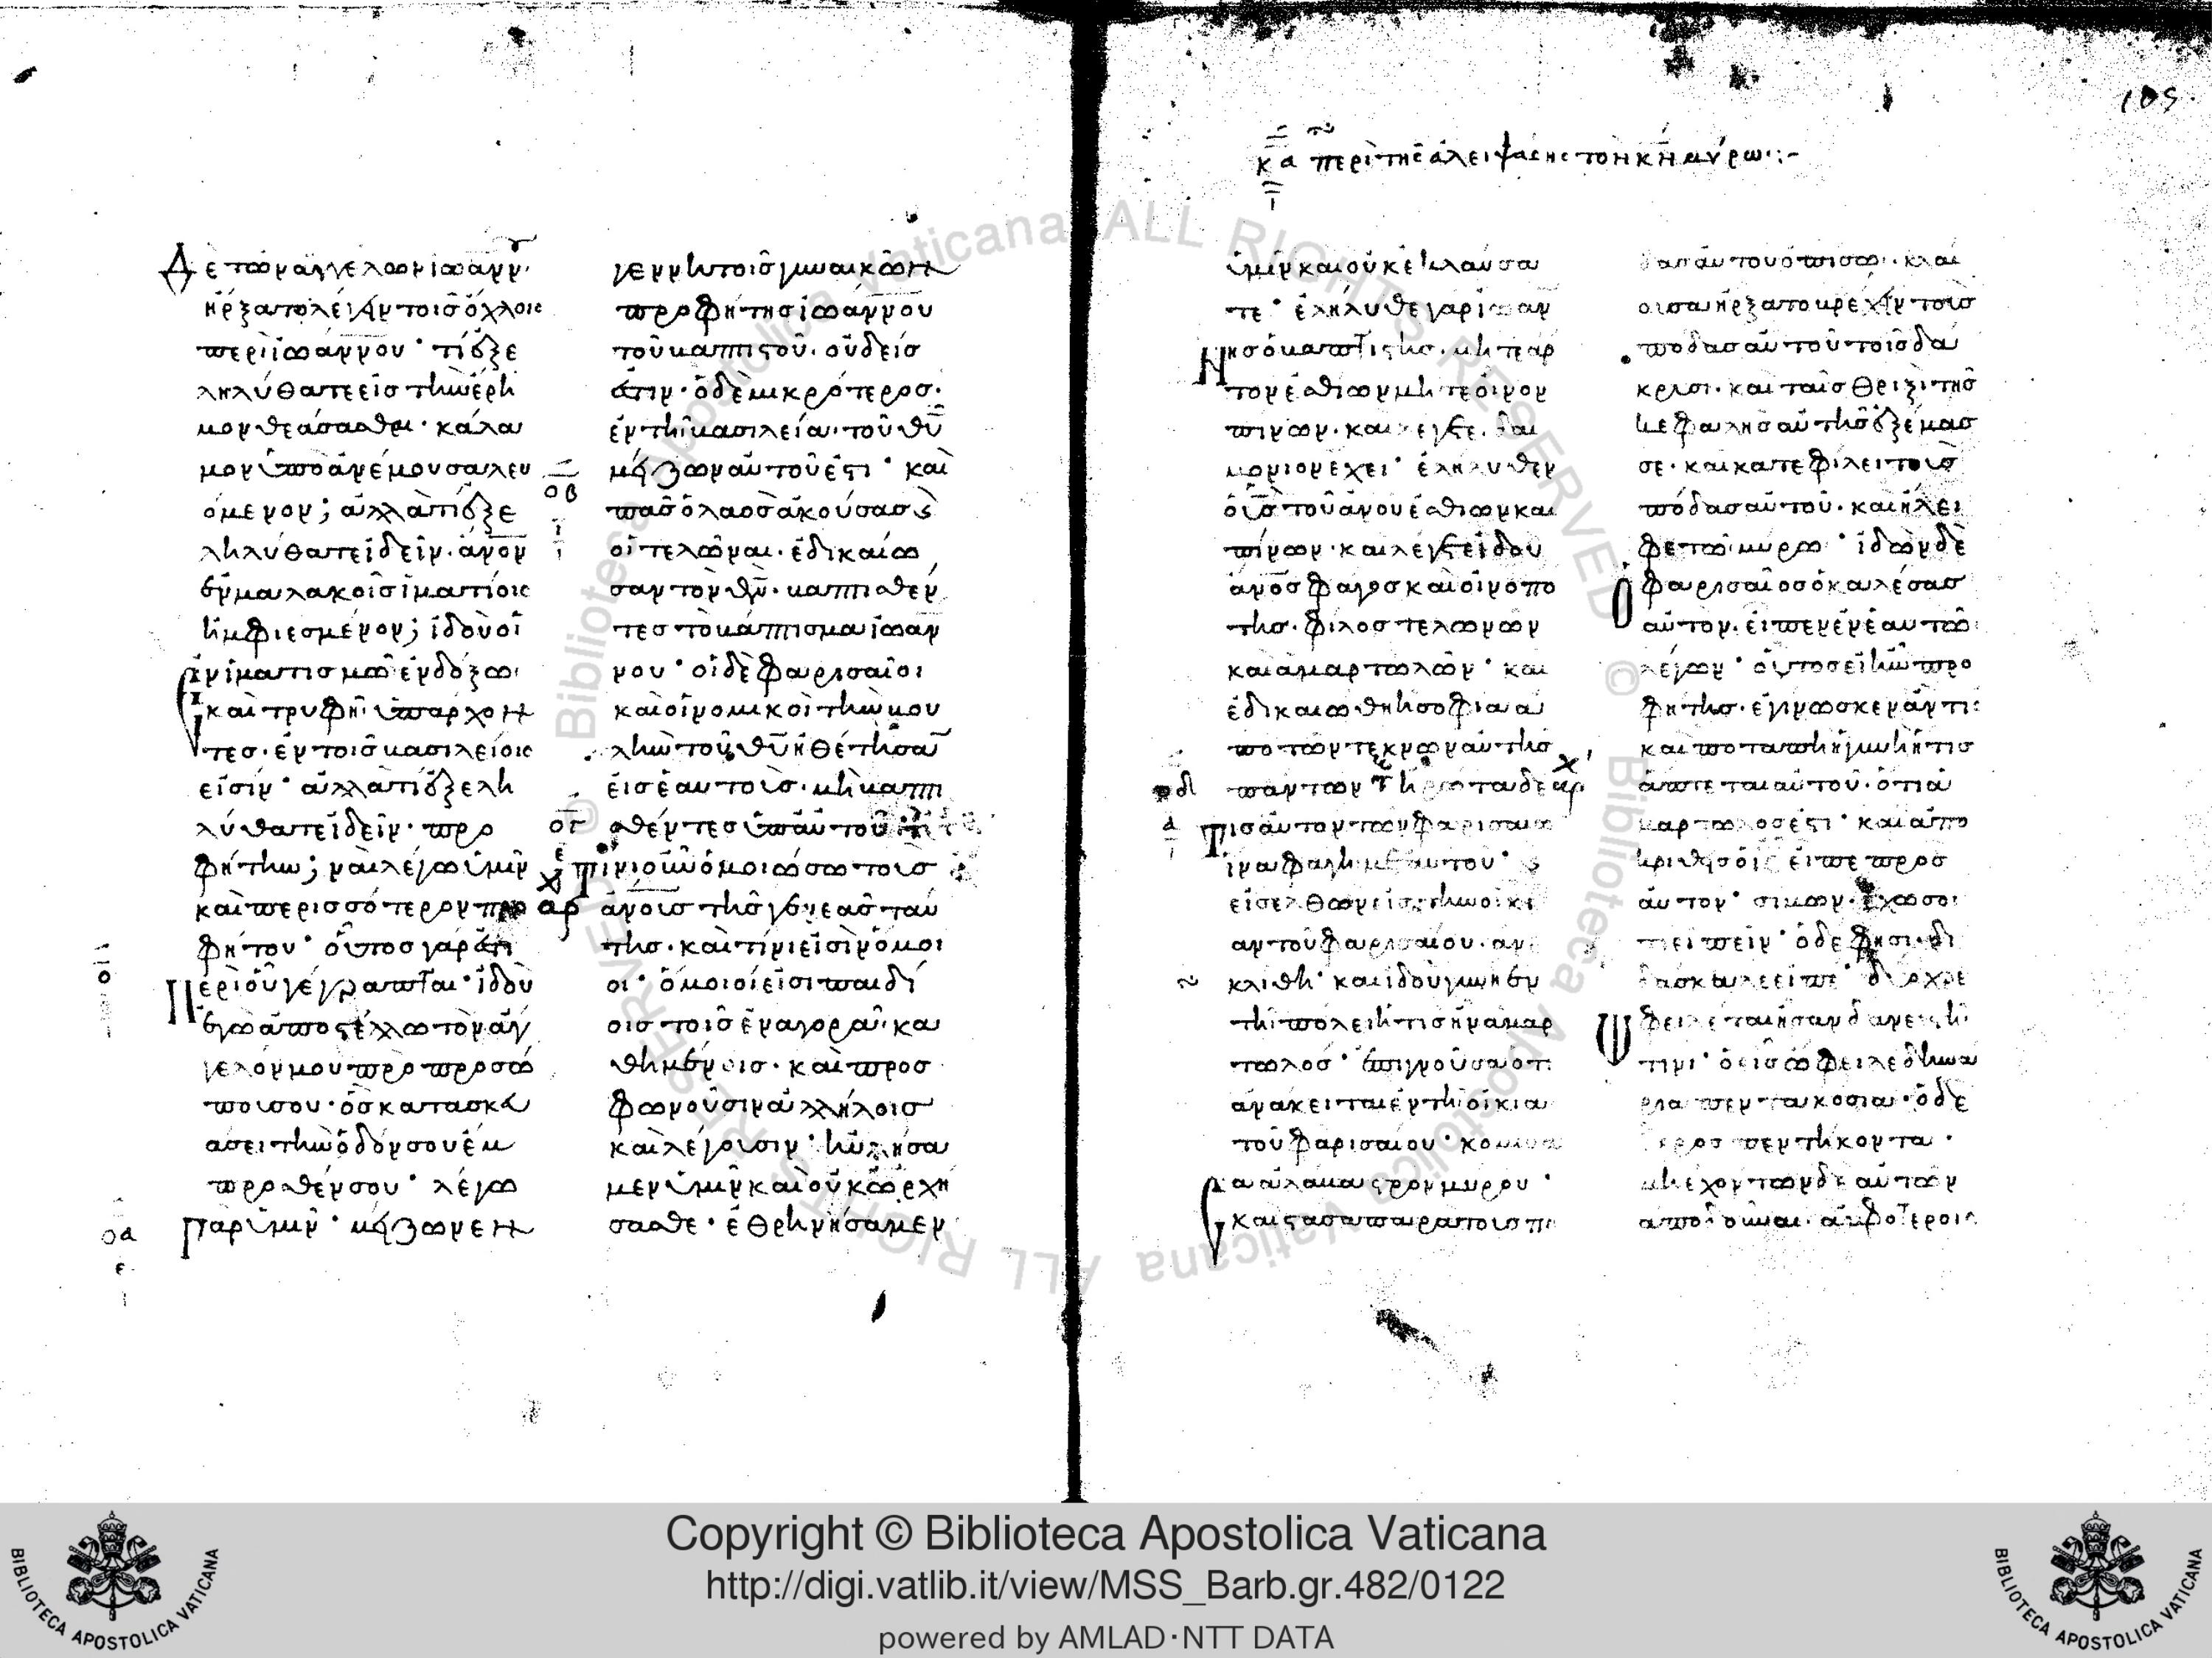 Δὲ τῶν ἀγγέλων ἰωάνν
ἤρξατο λέγειν τοῖς ὄχλοις
περὶ ἰωάννου· τί ἐξε
ληλύθατε εἰς τὴν ἔρη
μον θεάσασθαι· κάλα
μον ὑπὸ ἀνέμου σαλευ
όμενον; ἀλλὰ τί ἐξε
ληλύθατε ἰδεῖν· ἄνον
ἐν μαλακοῖς ἱματίοις
ἠμφιεσμένον; ἰδοὺ οἱ
ἐν ἱματισμῶ ἐνδόξω
καὶ τρυφῆ ὑπάρχον
τες· ἐν τοῖς βασιλείοις
εἰσίν· ἀλλὰ τί ἐξελη
λύθατε ἰδεῖν· προ
φήτην; ναὶ λέγω ὑμῖν
καὶ περισσότερον προ
φήτου· οὗτος γάρ ἐστι
Περὶ οὗ γέγραπται· ἰδοὺ
ἐγὼ ἀποστέλλω τὸν ἄγ
γελόν μου πρὸ προσώ
που σου· ὃς κατασκευ
άσει τὴν ὁδόν σου ἔμ
προσθέν σου· λέγω
οα
Γὰρ ὑμῖν· μείζων ἐν
γεννητοῖς γυναικῶν
προφήτης ἰωάννου
τοῦ βαπτιστοῦ· οὐδείς
ἐστιν· ὁ δὲ μικρότερος·
ἐν τῆ βασιλεία τοῦ θυ
μείζων αὐτοῦ ἐστι· καὶ
οβ
πᾶς ὁ λαὸς ἀκούσας ϗ
οἱ τελῶναι· ἐδικαίω
σαν τὸν θν· βαπτισθέν
τες τὸ βάπτισμα ἰωάν
νου· οἱ δὲ φαρισαῖοι
καὶ οἱ νομικοὶ τὴν βου
λὴν τοῦ θυ ἠθέτησαν
εἰς ἑαυτοὺς· μὴ βαπτι
ογ σθέντες ὑπ' αὐτοῦ
Τίνι οὖν ὁμοιώσω τοὺς
αρ ἀνους τῆς γενεᾶς ταύ
της· καὶ τίνι εἰσὶν ὅμοι
οι· ὅμοιοί εἰσι παιδί
οις τοῖς ἐν ἀγορᾶ κα
θημένοις· καὶ προσ
φωνοῦσιν ἀλλήλοις
καὶ λέγουσιν· ηὐλήσα
μεν ὑμῖν καὶ οὐκ ὠρχή
σασθε· ἐθρηνήσαμεν
105
κα περὶ τῆς ἀλειψάσης τὸν κν μύρω:-
ὑμῖν καὶ οὐκ ἐκλαύσα
τε· ἐλήλυθε γὰρ ἰωάν
νης ὁ βαπτιστὴς· μήτε ἄρ
τον ἐσθίων μήτε οἶνον
πίνων· καὶ λέγετε· δαι
μόνιον ἔχει· ἐλήλυθεν
ὁ υς τοῦ ανου ἐσθίων καὶ
πίνων· καὶ λέγετε ἰδοὺ
ανος φάγος καὶ οἰνοπό
της· φίλος τελωνῶν
καὶ ἁμαρτωλῶν· καὶ
ἐδικαιώθη ἡ σοφία ἀ
πὸ τῶν τέκνων αὐτῆς
οδ πάντων Ἠρώτα δέ
τις αὐτὸν τῶν φαρισαίων
ἵνα φάγη μετ' αὐτοῦ· ϗ
εἰσελθὼν εἰς τὴν οἰκί
αν τοῦ φαρισαίου· ἀνε
κλίθη· καὶ ἰδοὺ γυνὴ ἐν
τῆ πόλει ἥτις ἦν ἁμαρ
τωλός· ἐπιγνοῦσα ὅτι
ἀνάκειται ἐν τῆ οἰκία
τοῦ φαρισαίου· κομίσα
σα ἀλάβαστρον μύρου·
καὶ στᾶσα παρὰ τοὺς πό
δας αὐτοῦ ὀπίσω· κλαί
ουσα ἤρξατο βρέχειν τοὺς
πόδας αὐτοῦ τοῖς δά
κρυσι· καὶ ταῖς θριξὶ τῆς
κεφαλῆς αὐτῆς ἐξέμασ
σε· καὶ κατεφίλει τοὺς
πόδας αὐτοῦ· καὶ ἤλει
φε τῶ μύρω· ἰδὼν δὲ
Ὁ φαρισαῖος ὁ καλέσας
αὐτὸν· εἶπεν ἐν ἑαυτῶ
λέγων· οὗτος εἰ ἦν προ
φήτης· ἐγίνωσκεν ἂν τίς
καὶ ποταπὴ ἡ γυνὴ ἥτις
ἅπτεται αὐτοῦ· ὅτι ἁ
μαρτωλός ἐστι· καὶ ἀπο
κριθεὶς ὁ ις εἶπε πρὸς
αὐτόν· σίμων· ἔχω σοί
τι εἰπεῖν· ὁ δέ φησι· δι
δάσκαλε εἰπέ· δύο χρε
ωφειλέται ἦσαν δανειστῆ
τινι· ὁ εἷς ὤφειλε δηνά
ρια πεντακόσια· ὁ δὲ
ἕτερος πεντήκοντα·
μὴ ἐχόντων δὲ αὐτῶν
ἀποδοῦναι· ἀμφοτέροις
Copyright © Biblioteca Apostolica Vaticana
http://digi.vatlib.it/view/MSS_Barb.gr.482/0122
powered by AMLAD·NTT DATA